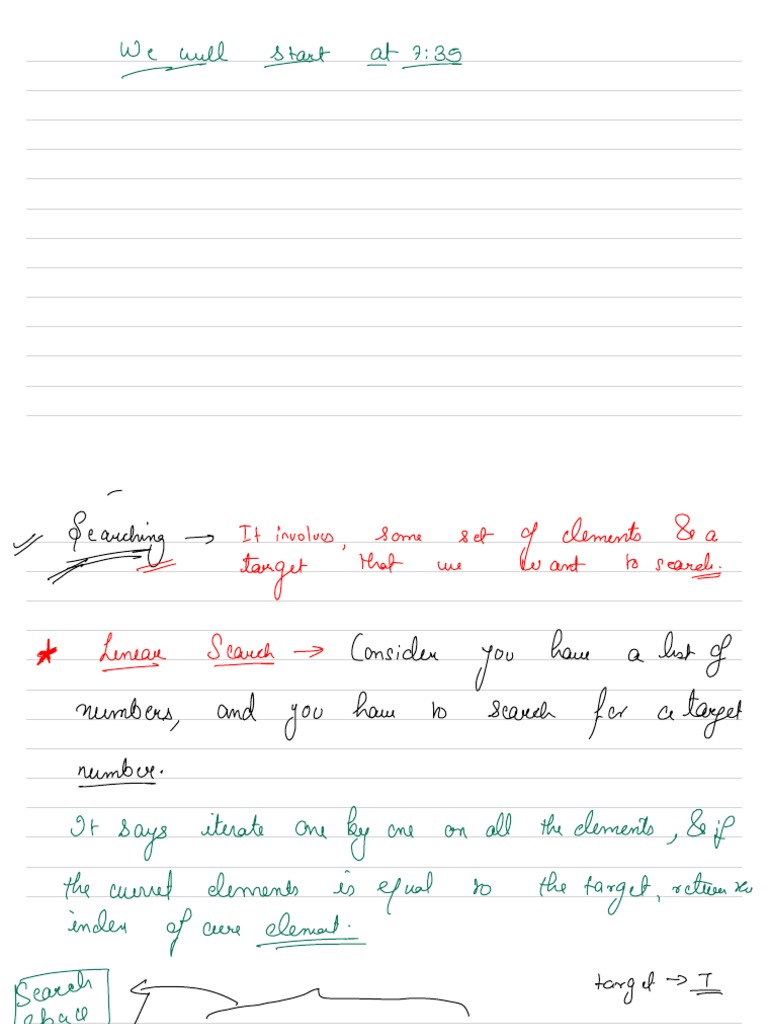 We will start at 7:35
Searching → It involves, some set of elements & a
target that we want to search.
* Linear Search → Consider you have a list of
numbers, and you have to search for a target
number.
It says iterate one by one on all the elements, & if
the current elements is equal to the target, return
index of curr element.
target → 7
Search
space